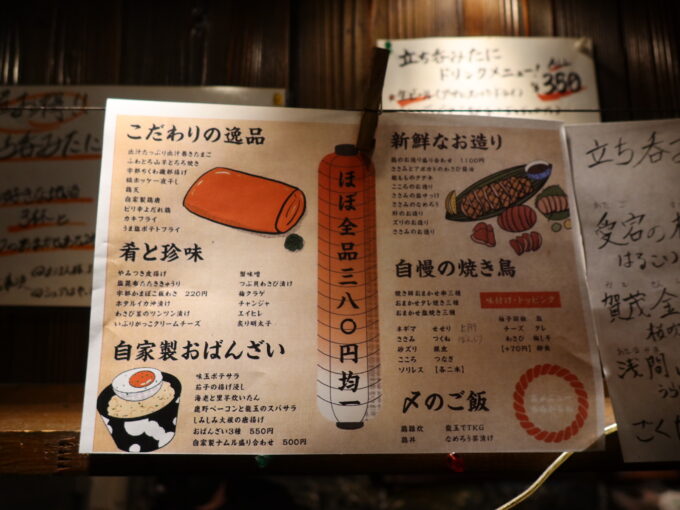 立ち呑みたに
ドリンクメニュー！
¥350
こだわりの逸品
出汁たっぷり出汁巻きたまご
ふわとろ山芋とろろ焼き
宇部ちくわ磯部揚げ
縞ホッケ一夜干し
鶏天
自家製鶏唐
ピリ辛よだれ鶏
カキフライ
うま塩ポテトフライ
肴と珍味
やみつき皮揚げ
塩昆布たたききゅうり
宇部かまぼこ板わさ 220円
ホタルイカ沖漬け
わさび茎のツンツン漬け
いぶりがっこクリームチーズ
蟹味噌
つぶ貝わさび漬け
梅クラゲ
チャンジャ
エイヒレ
炙り明太子
自家製おばんざい
味玉ポテサラ
茄子の揚げ浸し
海老と里芋炊いたん
鹿野ベーコンと龍玉のスパサラ
しみしみ大根の唐揚げ
おばんざい3種 550円
自家製ナムル盛り合わせ 500円
ほぼ全品三八〇円均一
新鮮なお造り
鶏のお造り盛り合わせ 1100円
ささみとアボカトのわさび醤油
鶏もものタタキ
こころのお造り
ささみの塩ゆっけ
ささみのなめろう
肝のお造り
ズリのお造り
ささみのお造り
自慢の焼き鳥
焼き師おまかせ串三種
おまかせタレ焼き三種
おまかせ塩焼き三種
ネギマ
ささみ
砂ズリ
こころ
ソリレス
せせり
つくね
銀皮
つなぎ
【各二本】
味付け・トッピング
柚子胡椒 塩
チーズ タレ
わさび 梅しそ
【+70円】 卵黄
〆のご飯
鶏雑炊
鶏丼
龍玉でTKG
なめろう茶漬け
立ち呑
愛宕の
はるこい
賀茂金
浅間
さく